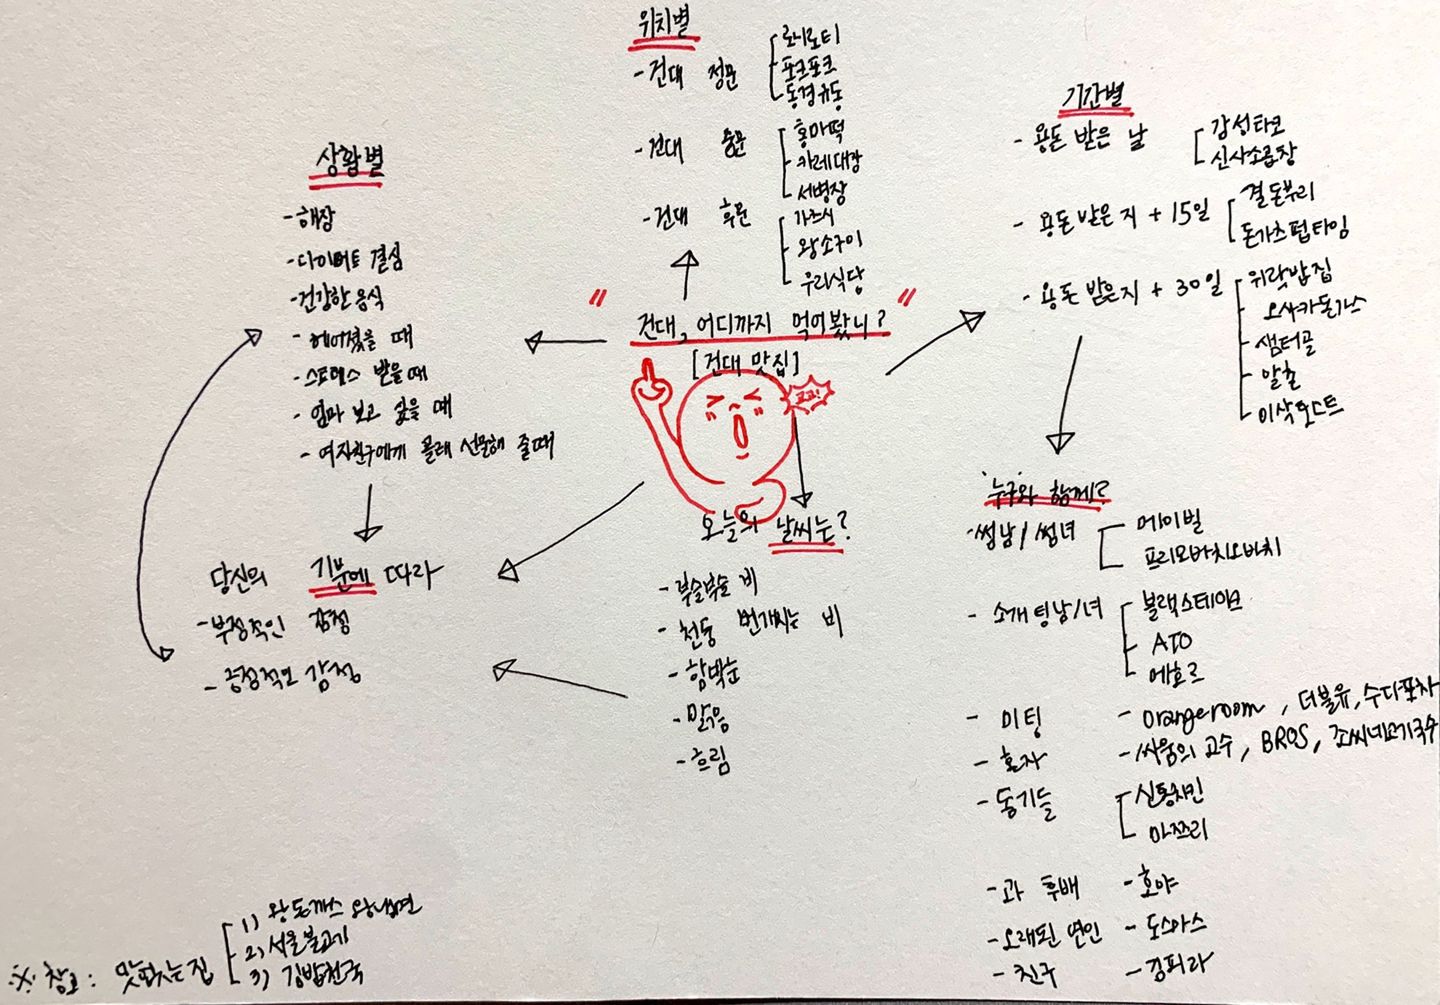 위치별
- 건대 정문
로니로티
포크포크
동경규동
- 건대 중문
홍마떡
카레대장
서병장
- 건대 후문
가츠시
왕소구이
우리식당
기간별
- 용돈 받은 날
감성타코
신사소곱창
- 용돈 받은지 + 15일
결돈부리
돈가츠팝타임
- 용돈 받은지 + 30일
위락밥집
오사카돈가스
샘터골
알촌
이삭토스트
상황별
- 해장
- 다이어트 결심
- 건강한 음식
- 헤어졌을 때
- 스트레스 받을 때
- 엄마 보고 싶을 때
- 여자친구에게 몰래 선물해 줄때
" 건대, 어디까지 먹어봤니? "
[건대 맛집]
고고!
당신의 기분에 따라
- 부정적인 감정
- 긍정적인 감정
오늘의 날씨는?
- 부슬부슬 비
- 천둥 번개치는 비
- 함박눈
- 맑음
- 흐림
'누구와 함께?
- 썸남/썸녀
메이빌
프리모바치오바치
- 소개팅남/녀
블랙스테이크
ATO
메호르
- 미팅 - Orangeroom, 더블유, 수다포차
- 혼자 - 싸움의 고수, BROS, 조씨네고기국수
- 동기들
신통치킨
마쯔리
- 과 후배 - 호야
- 오래된 연인 - 도스마스
- 친구 - 긴피라
※ 참고: 맛없는 집
1) 왕돈까스 왕냉면
2) 서울불고기
3) 김밥천국